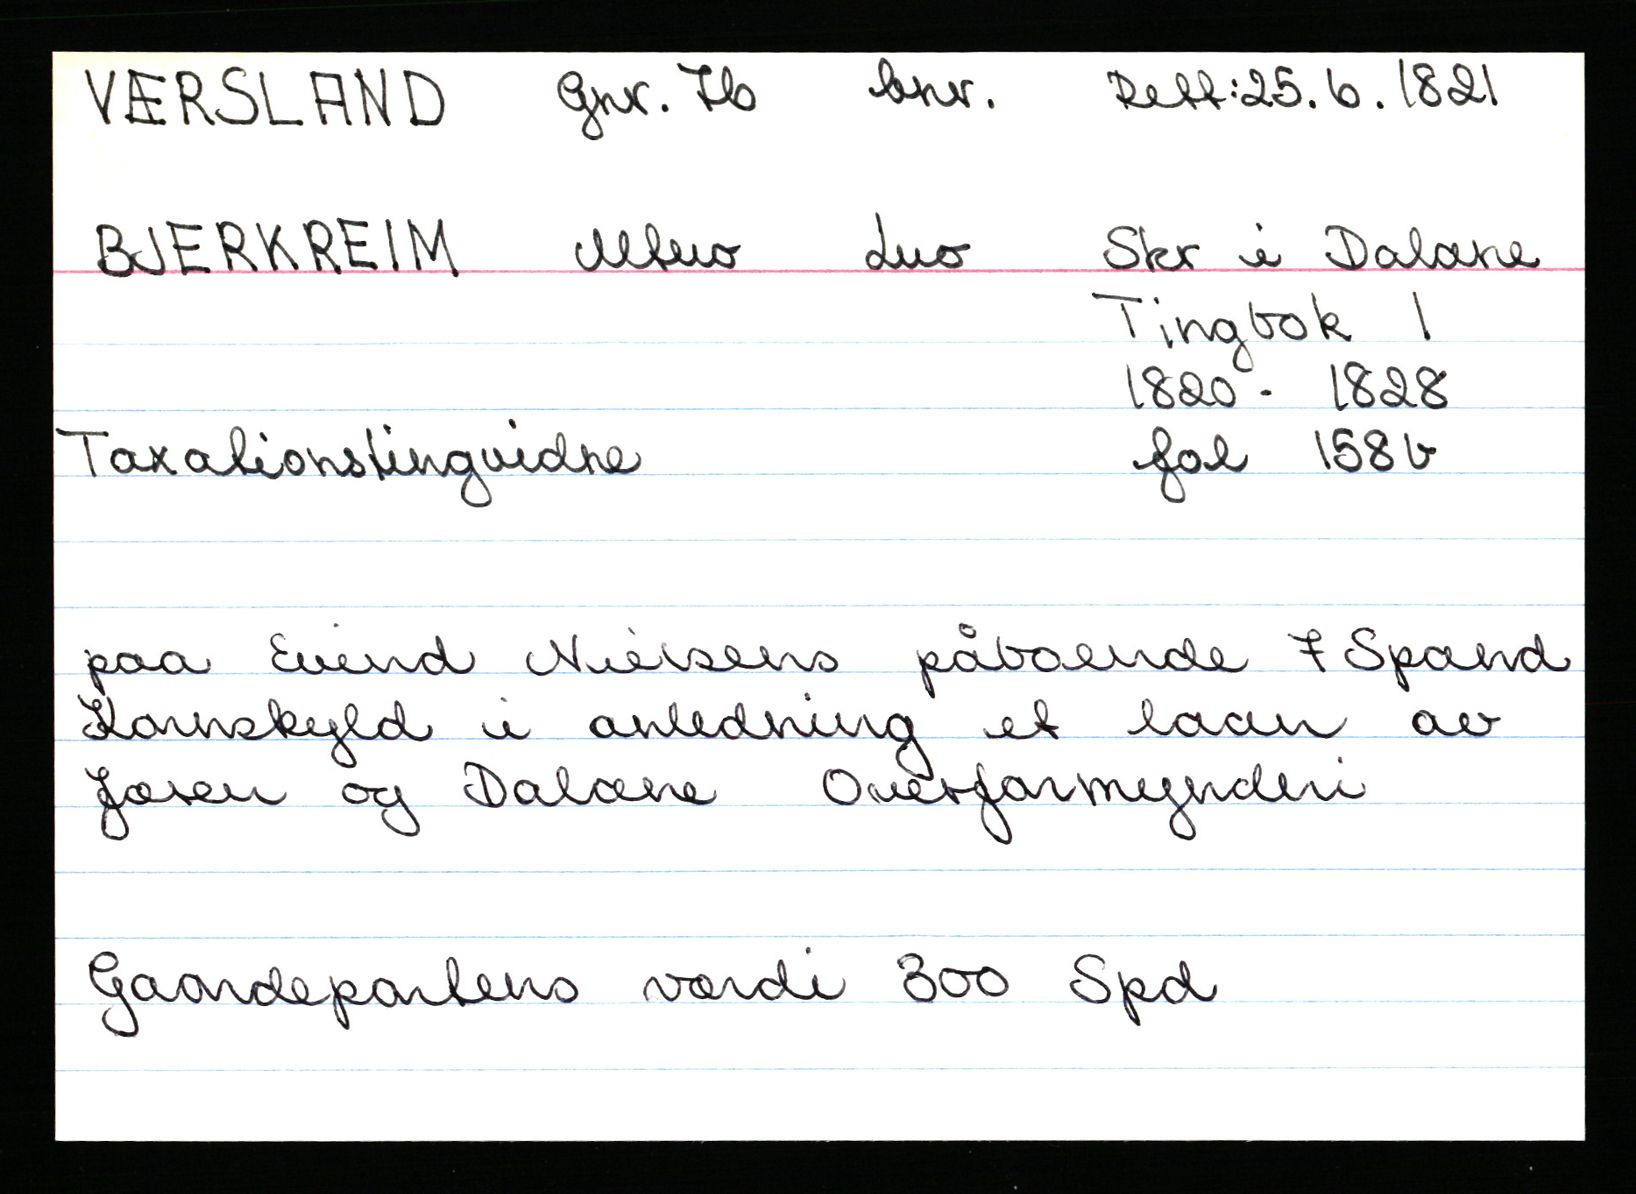 VÆRSLAND Gnr. 76 bnr. Rett: 25.6.1821
BJERKREIM Mtno Lno Skr i Dalane
Tingbok 1
1820 - 1828
Taxationstingvidne fol 158b
paa Eivind Nielsens påboende 7 Spand
Kornskyld i anledning et laan av
Jæren og Dalane Overformynderi
Gaardepartens værdi 300 Spd